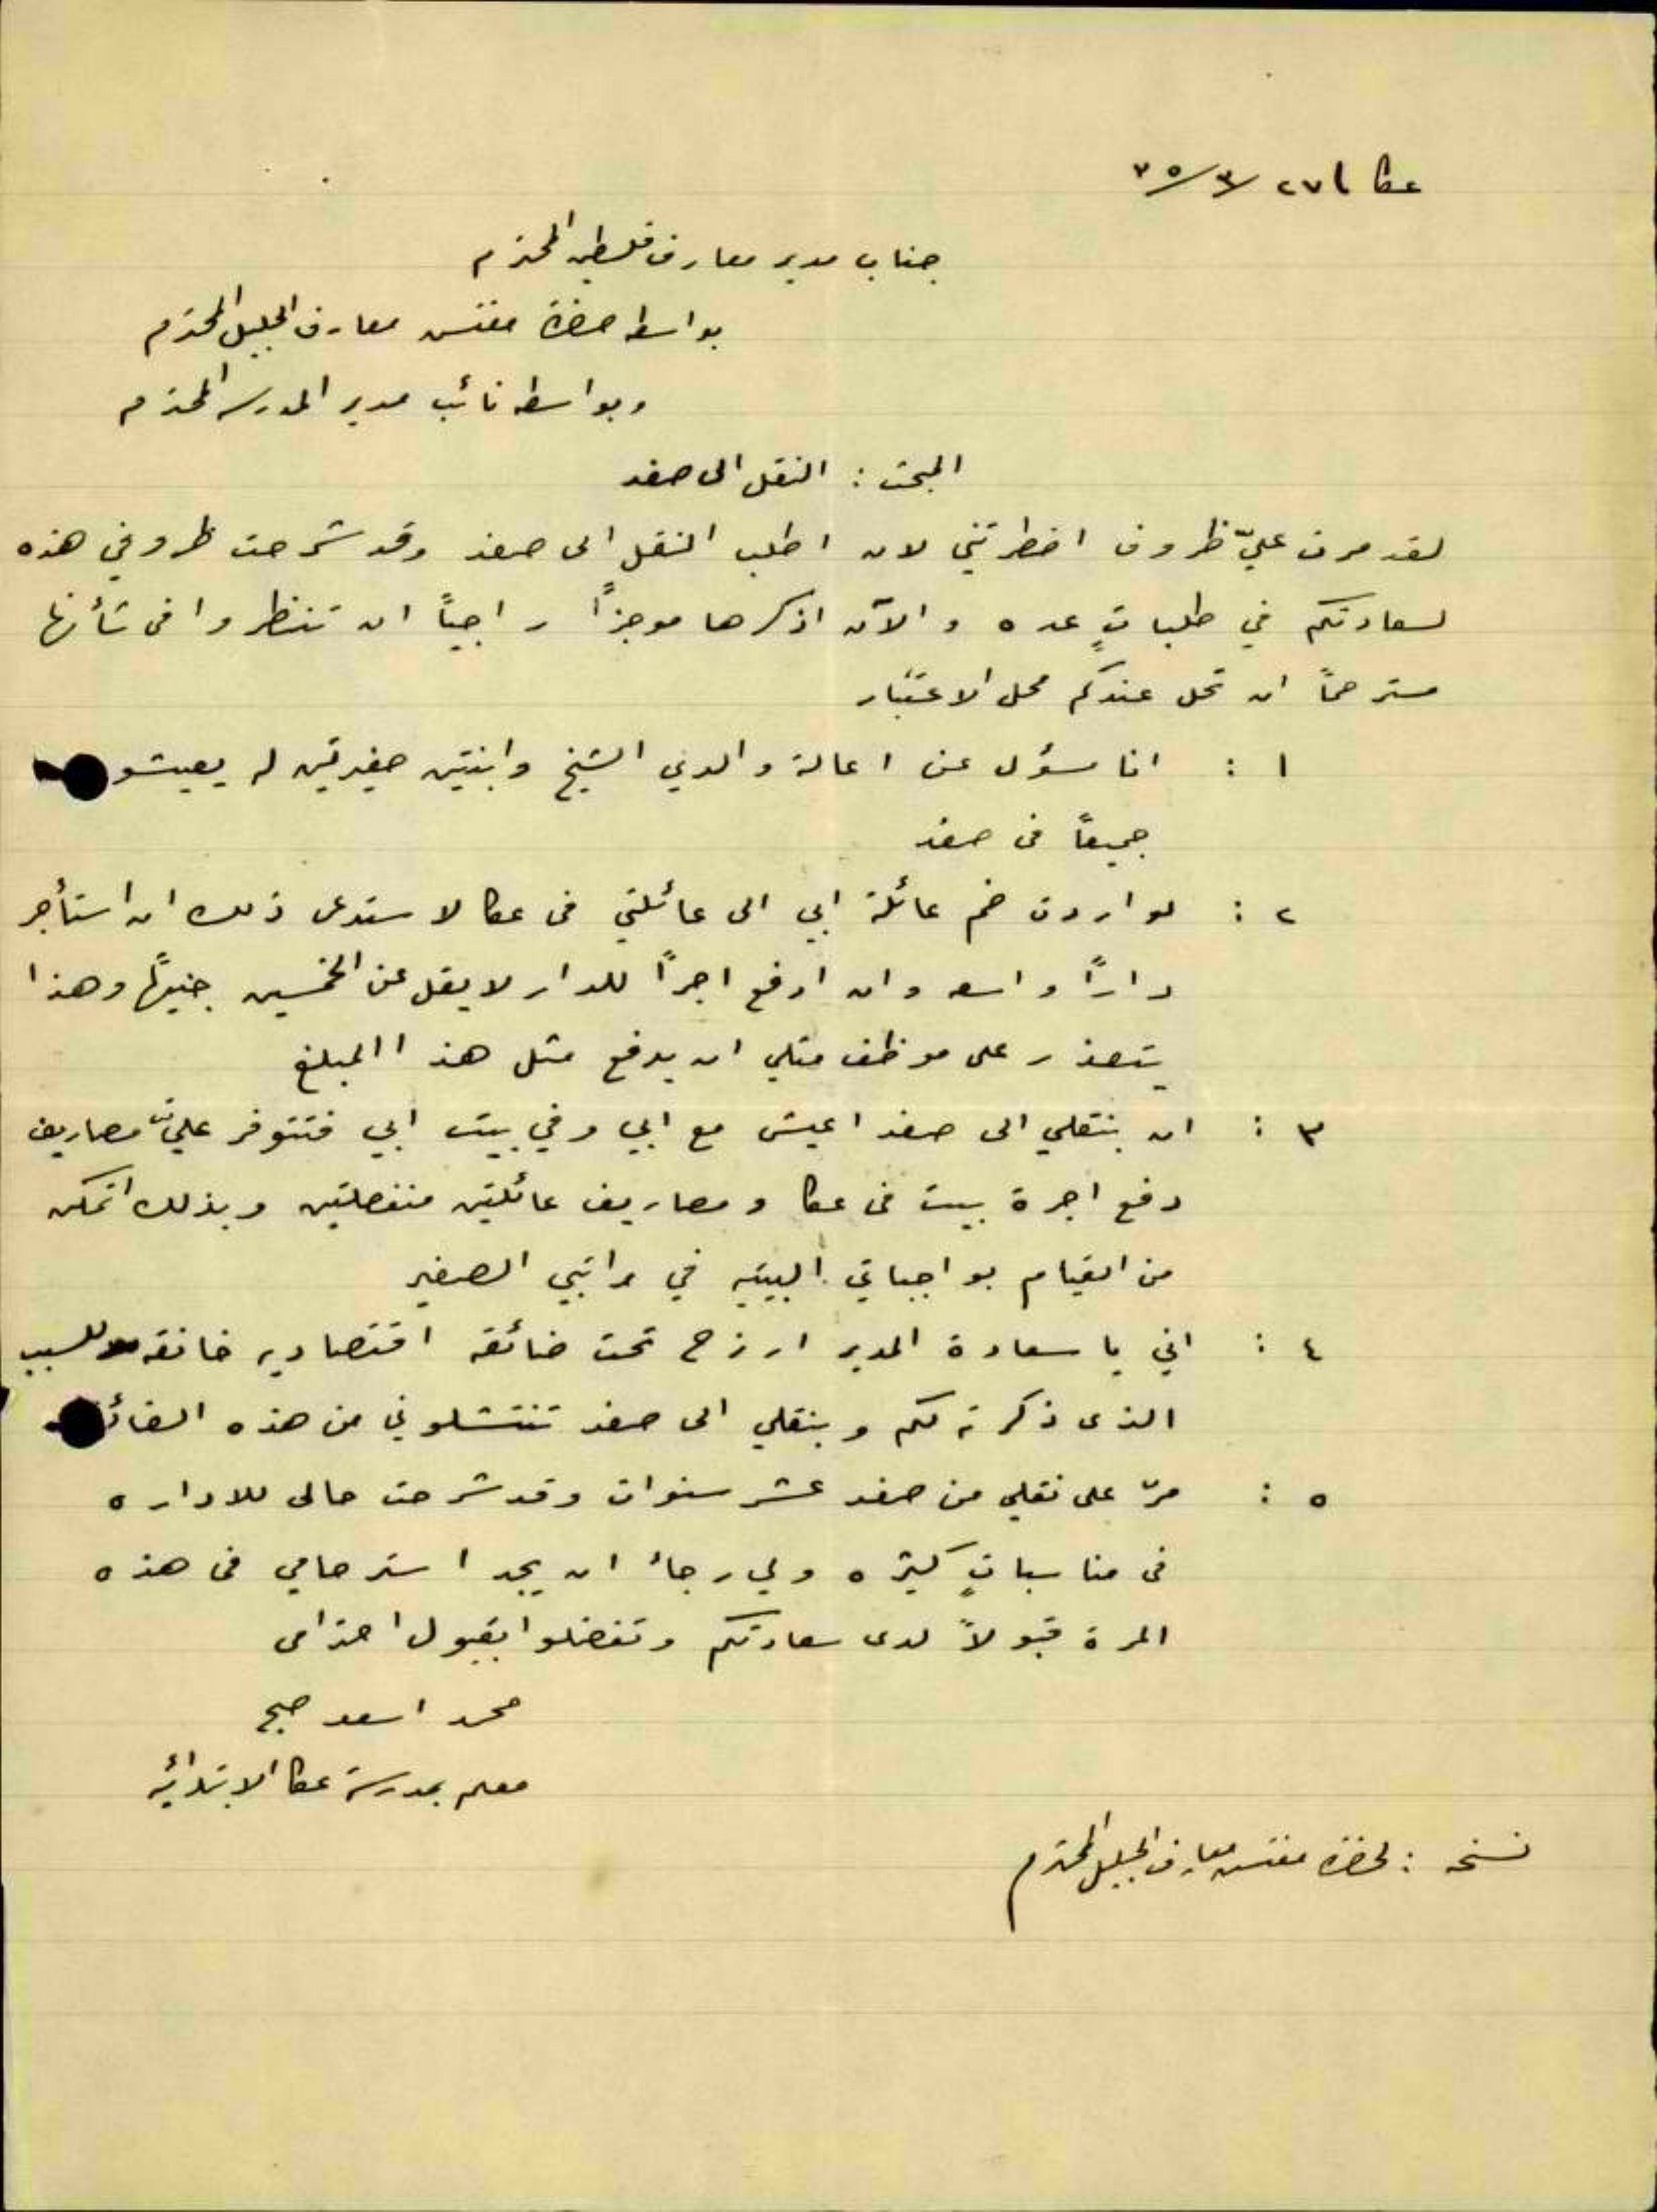 عكا ٢٧/٣/
جناب مدير معارف فلسطين المحترم
بواسطه حضرة مفتش معارف الجليل المحترم
وبواسطه نائب مدير المدرسه المحترم
المبحث : النقل الى صفد
لقد مرت عليّ ظروف اضطرتني لان اطلب النقل الى صفد وقد شرحت ظروفي هذه
لسعادتكم في طلباتٍ عده والآن اذكرها موجزاً راجياً ان تنظروا في شأنها
مسترحماً ان تحل عندكم محل الاعتبار
١ : انا مسؤل عن اعالة والدي الشيخ وابنتين صغيرتين له يعيشو
جميعاً في صفد
٢ : لو اردت ضم عائلة ابي الى عائلتي في عكا لاستدعى ذلك ان استأجر
داراً واسعه وان ادفع اجراً للدار لا يقل عن الخمسين جنيهاً وهذا
يتعذر على موظف مثلي ان يدفع مثل هذا المبلغ
٣ : ان بنقلي الى صفد اعيش مع ابي وفي بيت ابي فتتوفر عليّ مصاريف
دفع اجرة بيت في عكا ومصاريف عائلتين منفصلتين وبذلك اتمكن
من القيام بواجباتي البيتيه في راتبي الصغير
٤ : اني يا سعادة المدير ارزح تحت ضائقه اقتصاديه خانقه للسبب
الذى ذكرته لكم وبنقلي الى صفد تنتشلوني من هذه الضائ
٥ : مرّ على نقلي من صفد عشر سنوات وقد شرحت حالى للاداره
في مناسباتٍ كثيره ولي رجاء ان يجد استرحامي في هذه
المرة قبولاً لدى سعادتكم وتفضلوا بقبول احترامى
محمد اسعد صبح
معلم بمدرسة عكا الابتدائيه
نسخه : لحضرة مفتش معارف الجليل المحترم